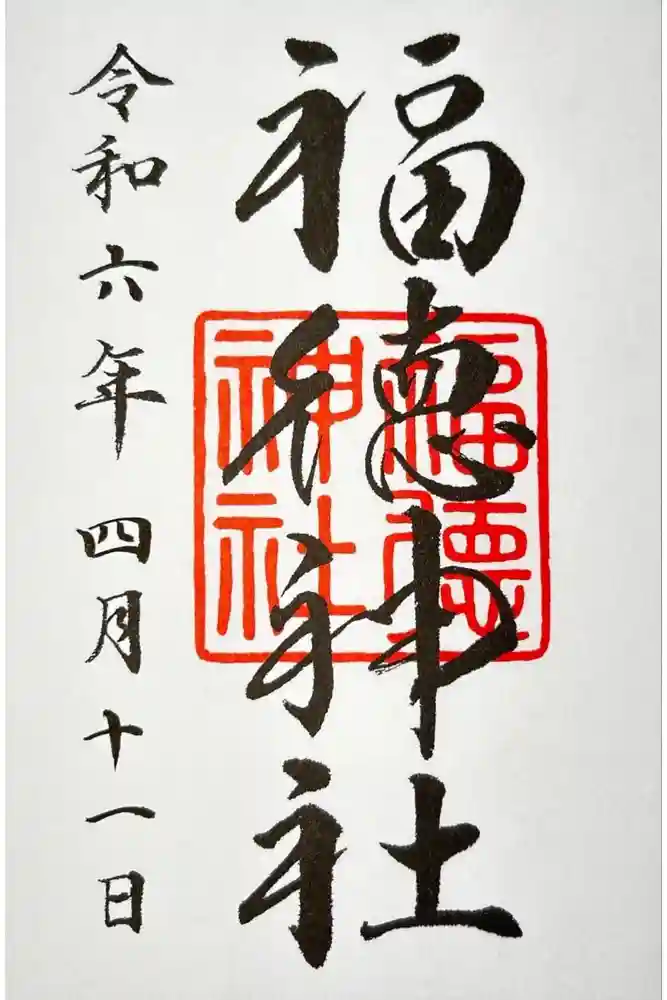 福徳神社
福徳神社
令和六年 四月十一日